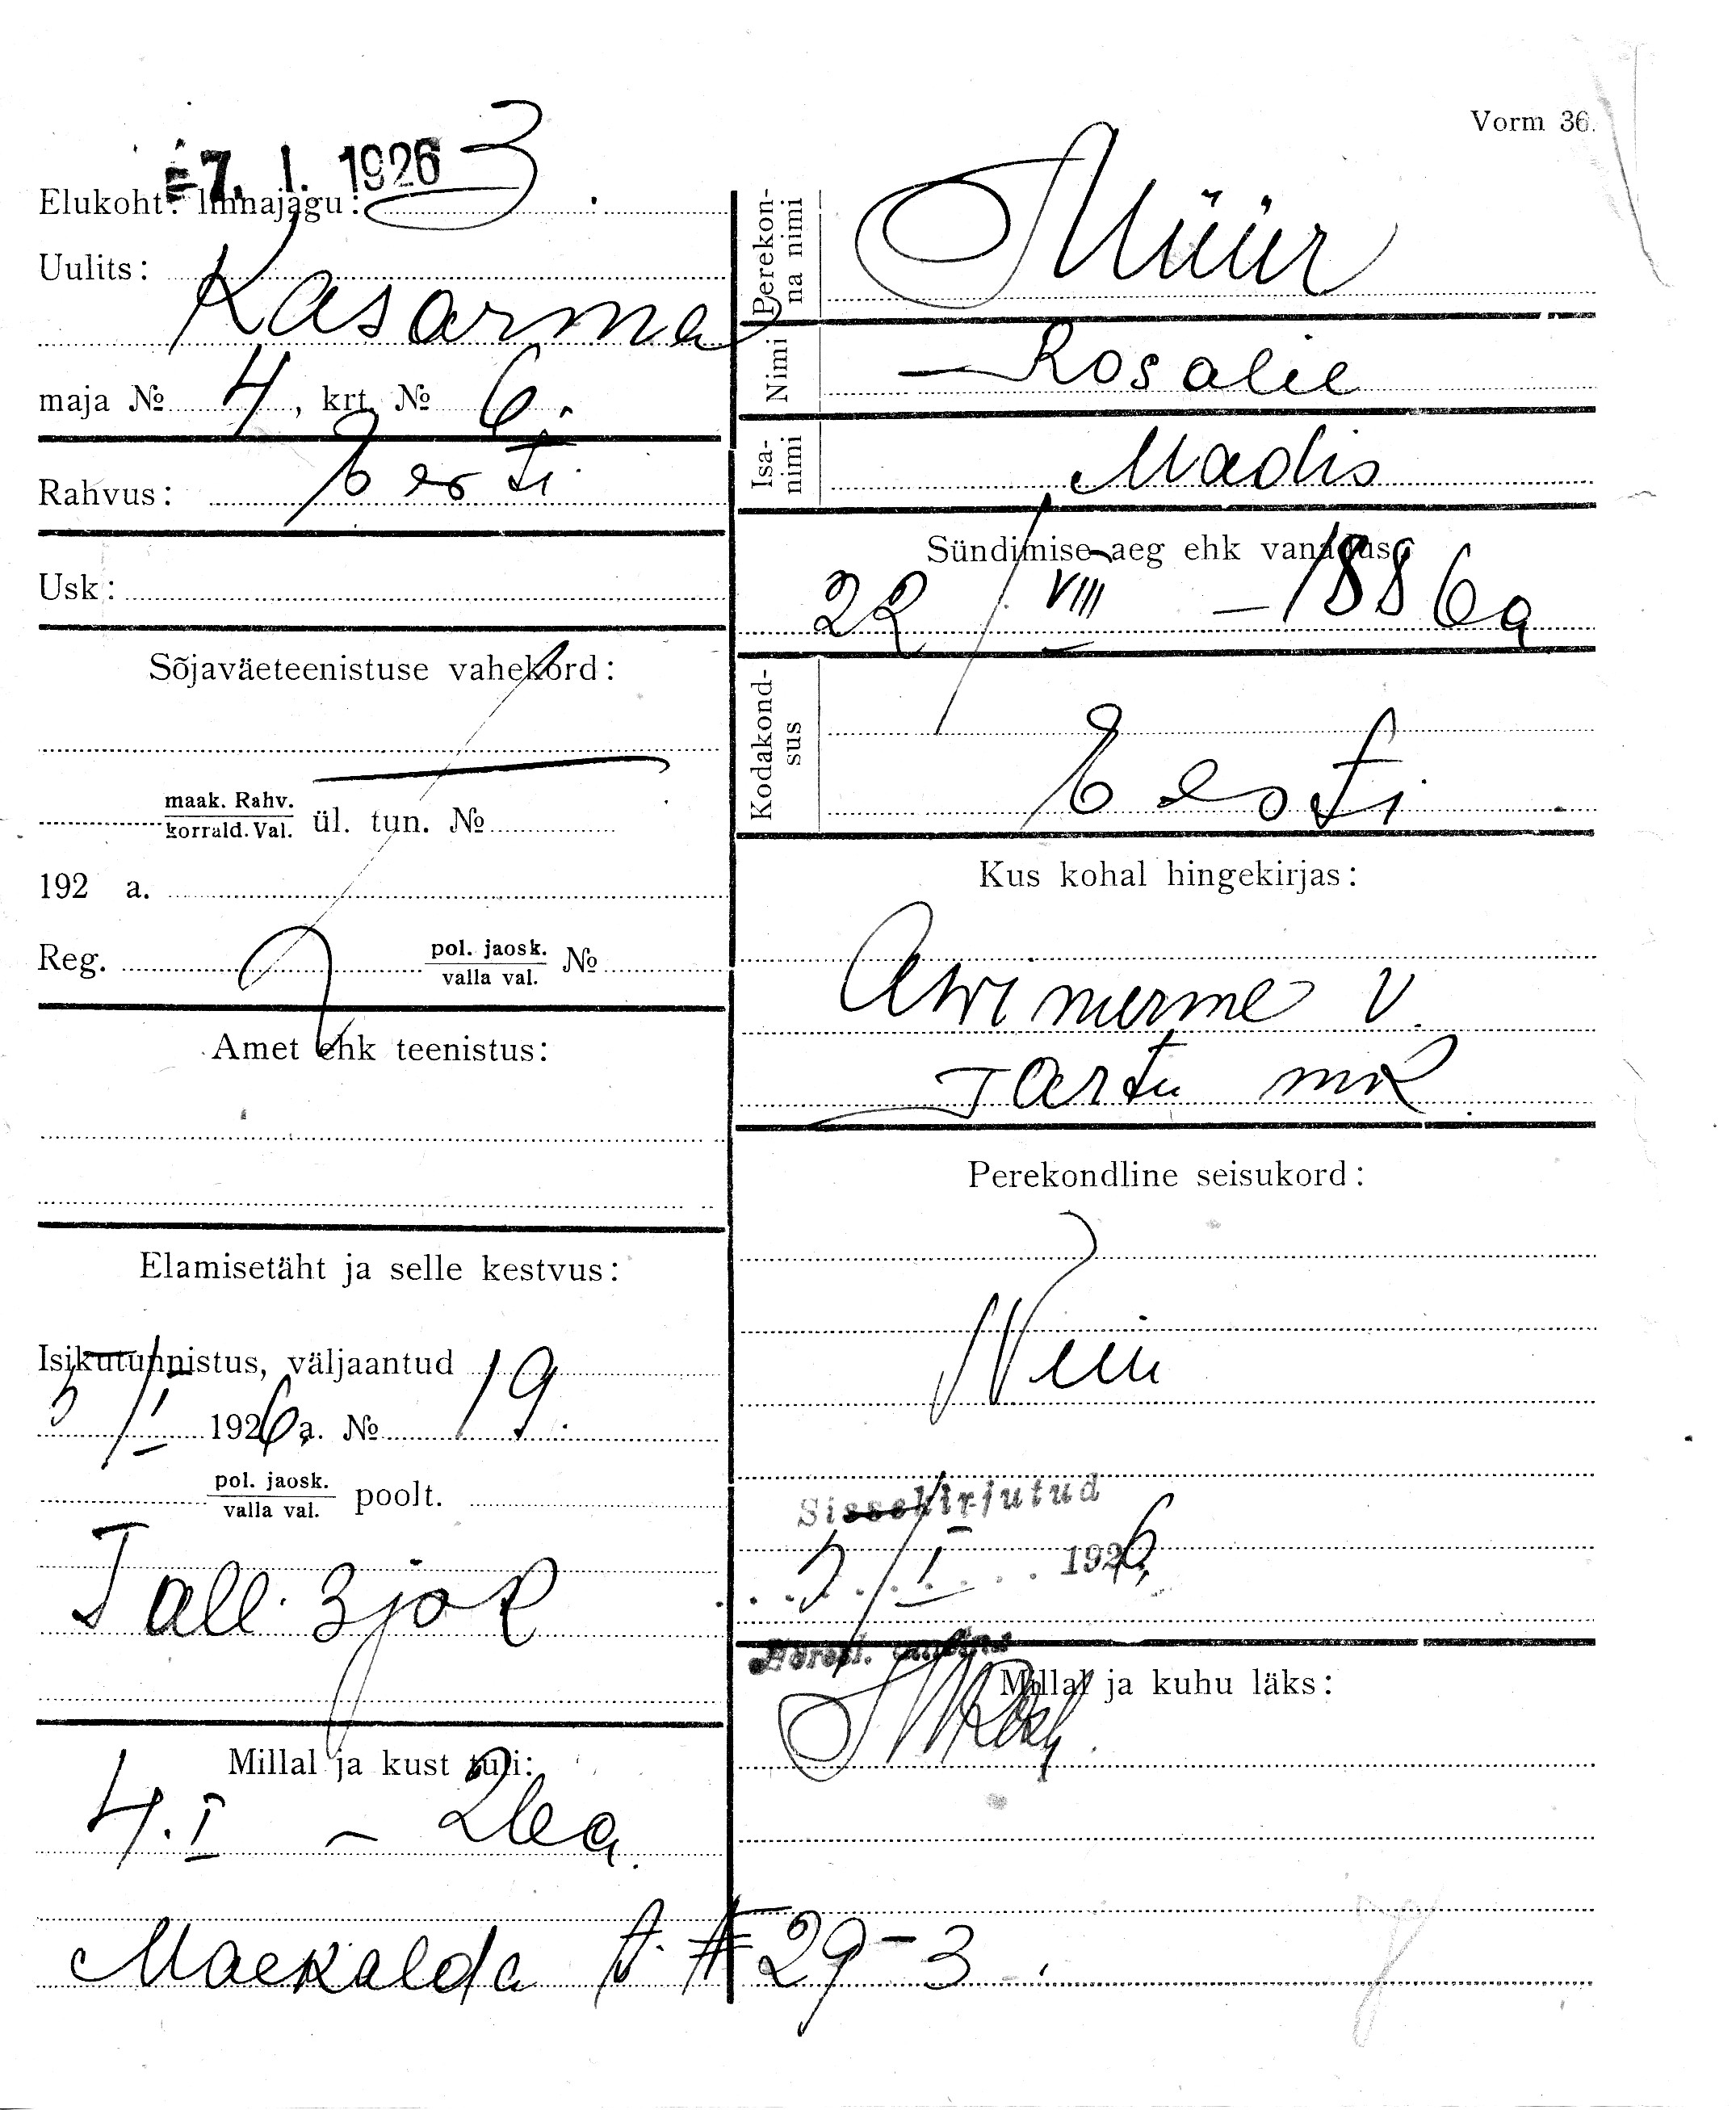 Vorm 36.
7. I. 1926
Elukoht: linnajagu: 3
Uulits:
Kasarma
maja № 4, krt. № 6.
Rahvus: Eesti
Usk:
Sõjaväeteenistuse vahekord:
maak. Rahv.
korrald. Val. ül. tun. №
192 a.
Reg. pol. jaosk.
valla val. №
Amet ehk teenistus:
Elamisetäht ja selle kestvus:
Isikutunnistus, väljaantud
5/I 1926 a. № 19.
pol. jaosk.
valla val. poolt.
Tall. 3 jaok
Millal ja kust tuli:
4. I – 26 a.
Maekalda t. # 29-3.
Perekon-
na nimi
Müür
Nimi
Rosalie
Isa-
nimi
Madis
Sündimise aeg ehk vanadus:
22/VIII – 1886 a
Kodakond-
sus
Eesti
Kus kohal hingekirjas:
Awinurme v.
Tartu mk.
Perekondline seisukord:
Sissekirjutud
5/I 1926.
Millal ja kuhu läks: